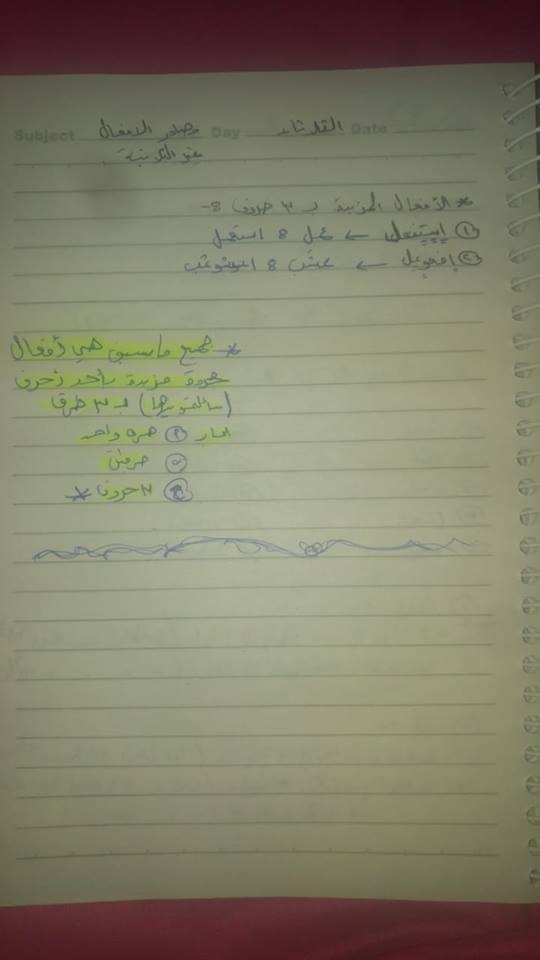 Subject مصادر الافعال Day الثلاثاء Date
غير الثلاثية
* الأفعال المزيدة بـ ٣ حروف :-
① إستفعل ← عمل : استعمل
② إفعوعل ← عشب : اعشوشب
* جميع ما سبق هي أفعال
مجردة مزيدة بأحد أحرف
(سألتمونيها) بـ ٣ طرق
① حرف واحد
② حرفين
③ ٣ حروف *